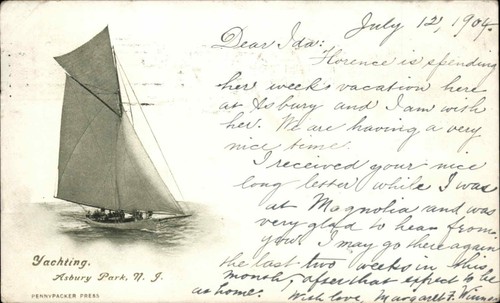 July 12, 1904.
Dear Ida:
Florence is spending
her weeks vacation here
at Asbury and I am with
her. We are having a very
nice time.
I received your nice
long letter while I was
at Magnolia and was
very glad to hear from
you. I may go there again
the last two weeks in this
month, after that expect to be
at home. With love, Margaret F.
Yachting.
Asbury Park, N. J.
PENNYPACKER PRESS